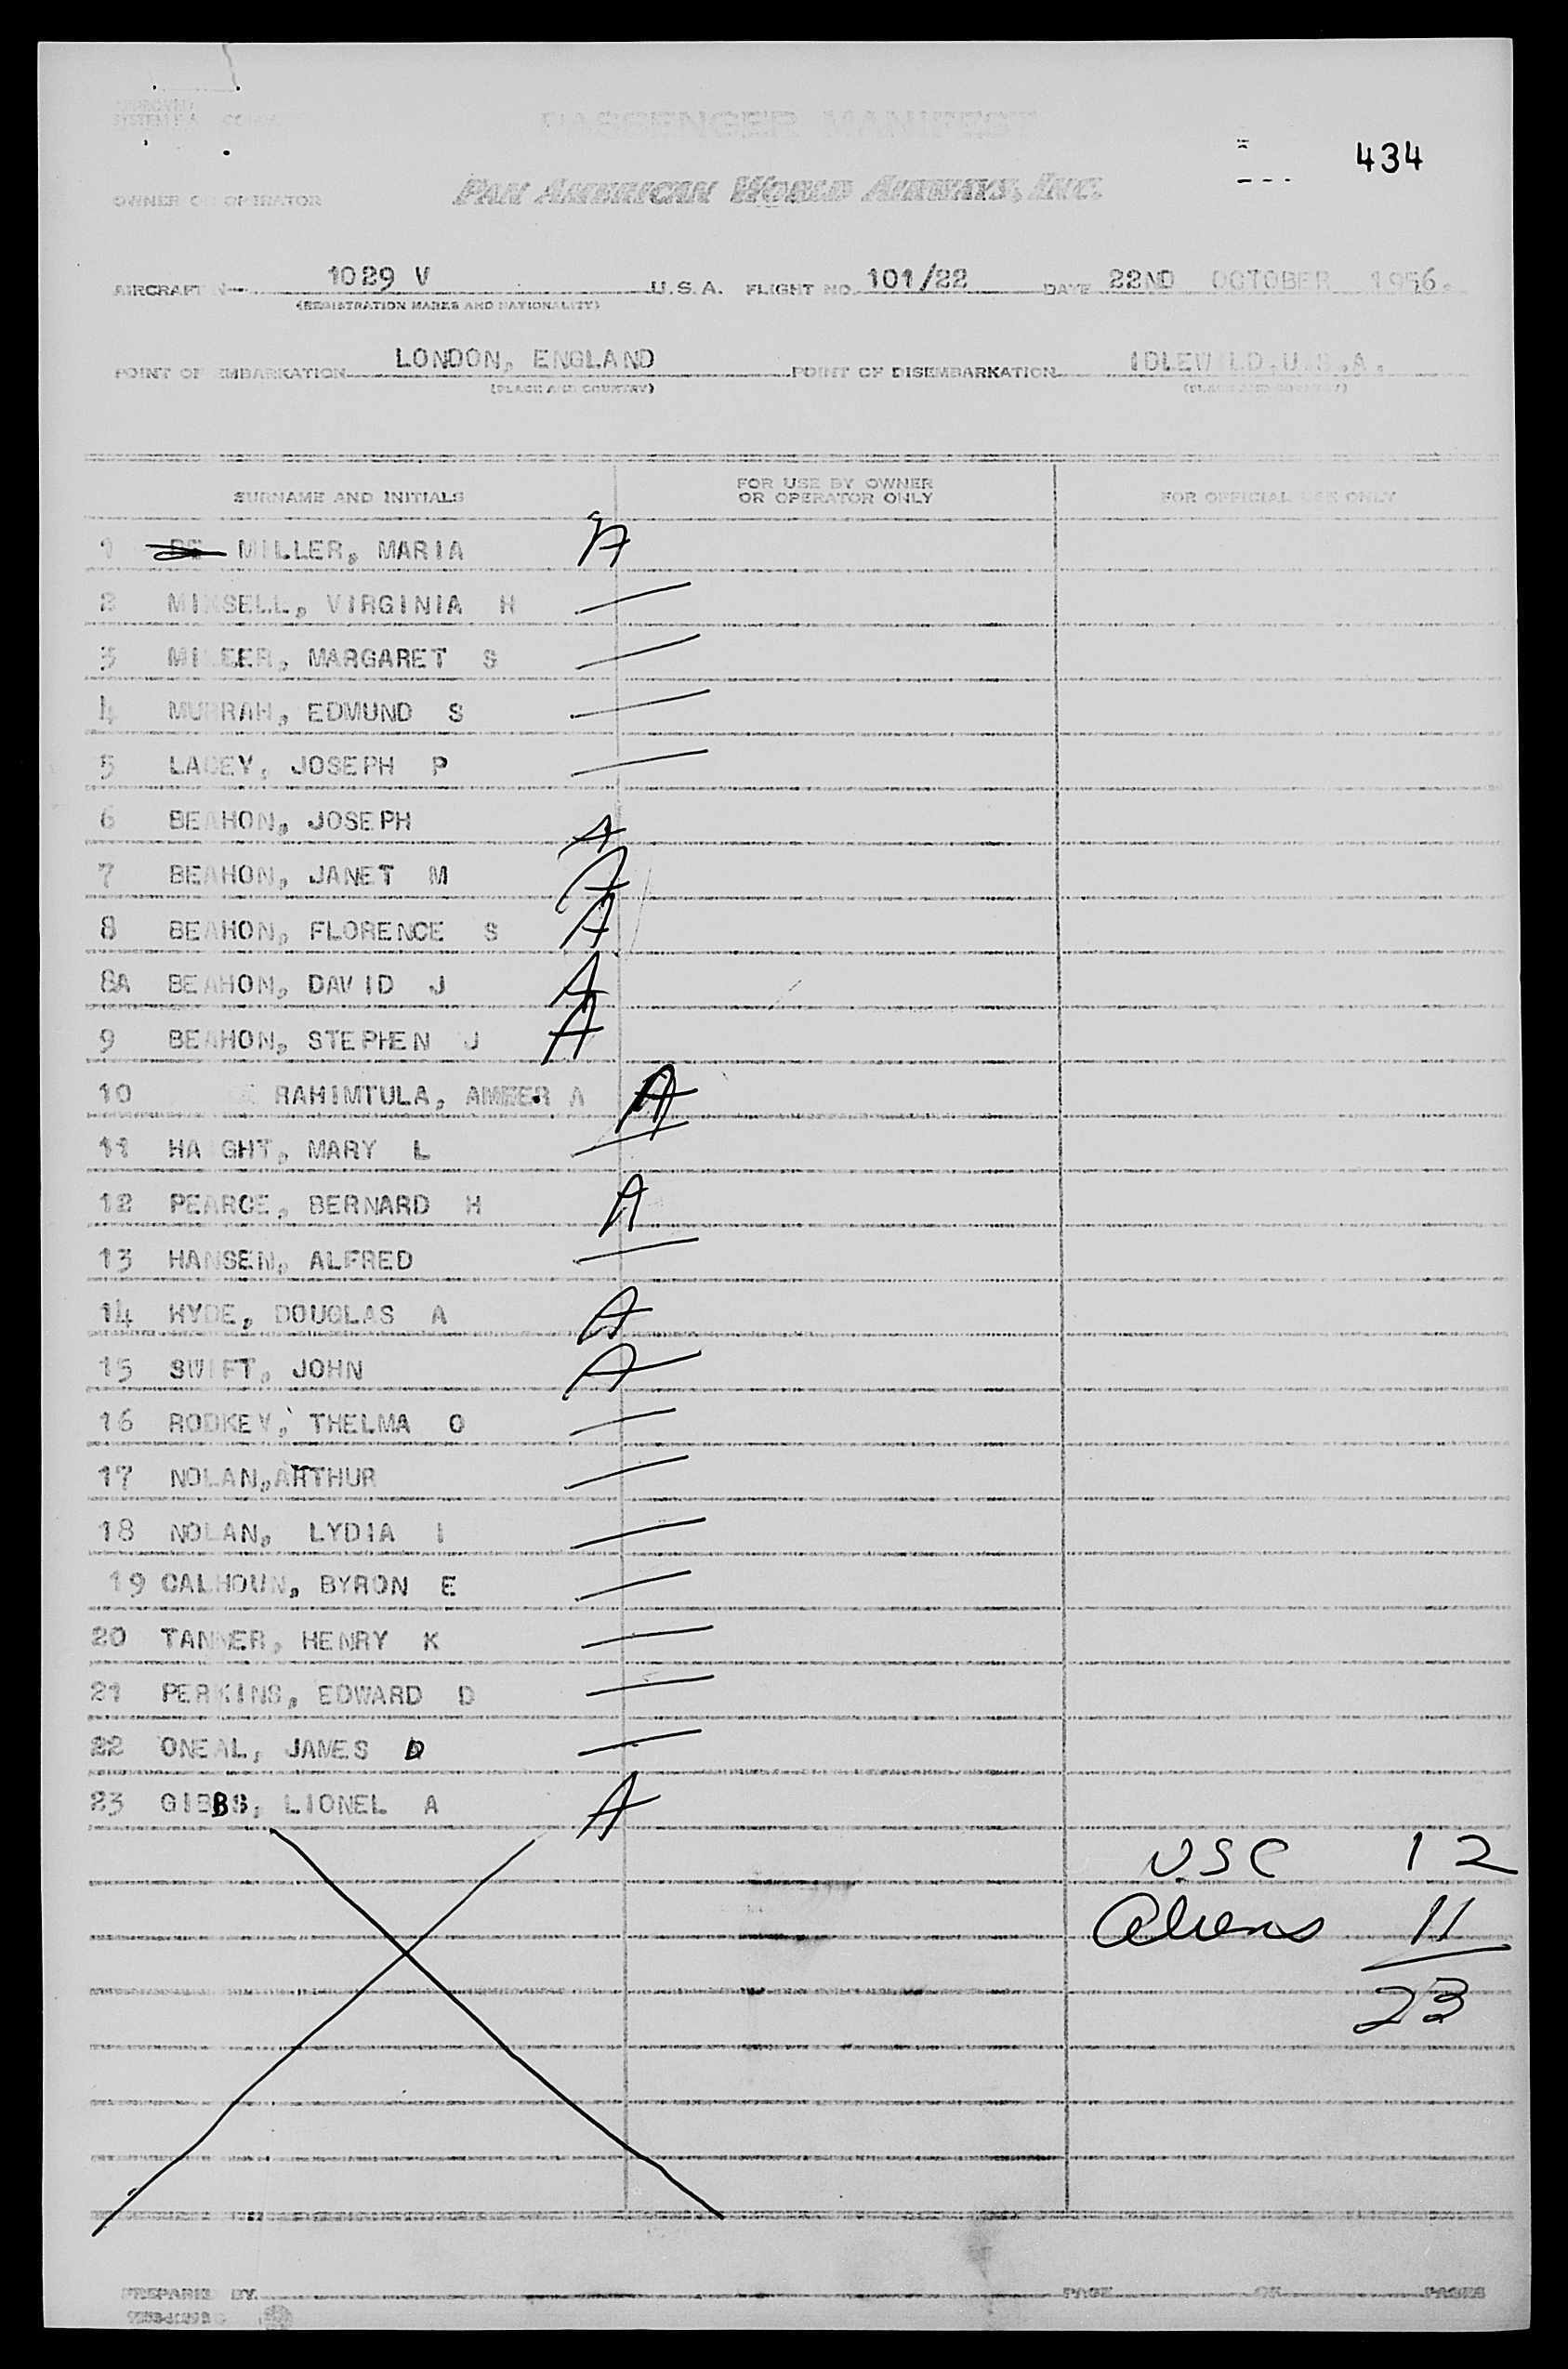 434
PASSENGER MANIFEST
OWNER OR OPERATOR PAN AMERICAN WORLD AIRWAYS, INC.
AIRCRAFT N 1029 V U.S.A. FLIGHT NO. 101/22 DATE 22ND OCTOBER 1956.
(REGISTRATION MARKS AND NATIONALITY)
POINT OF EMBARKATION LONDON, ENGLAND POINT OF DISEMBARKATION IDLEWILD, U.S.A.
(PLACE AND COUNTRY) (PLACE AND COUNTRY)
SURNAME AND INITIALS FOR USE BY OWNER OR OPERATOR ONLY FOR OFFICIAL USE ONLY
1 MILLER, MARIA A
2 VIRGINIA H
3 MARGARET S
4 MURRAH, EDMUND S
5 LACEY, JOSEPH P
6 BEAHON, JOSEPH A
7 BEAHON, JANET M A
8 BEAHON, FLORENCE S A
8A BEAHON, DAVID J A
9 BEAHON, STEPHEN J A
10 RAHIMTULA, AMEER A A
11 HAIGHT, MARY L
12 PEARCE, BERNARD H A
13 HANSEN, ALFRED
14 HYDE, DOUGLAS A A
15 SWIFT, JOHN A
16 RODKEY, THELMA O
17 NOLAN,ARTHUR
18 NOLAN, LYDIA I
19 CALHOUN, BYRON E
20 TANNER, HENRY K
21 PERKINS, EDWARD D
22 ONEAL, JAMES D
23 GIBBS, LIONEL A A
USC 12
Aliens 11
23
PREPARED BY PAGE OF PAGES